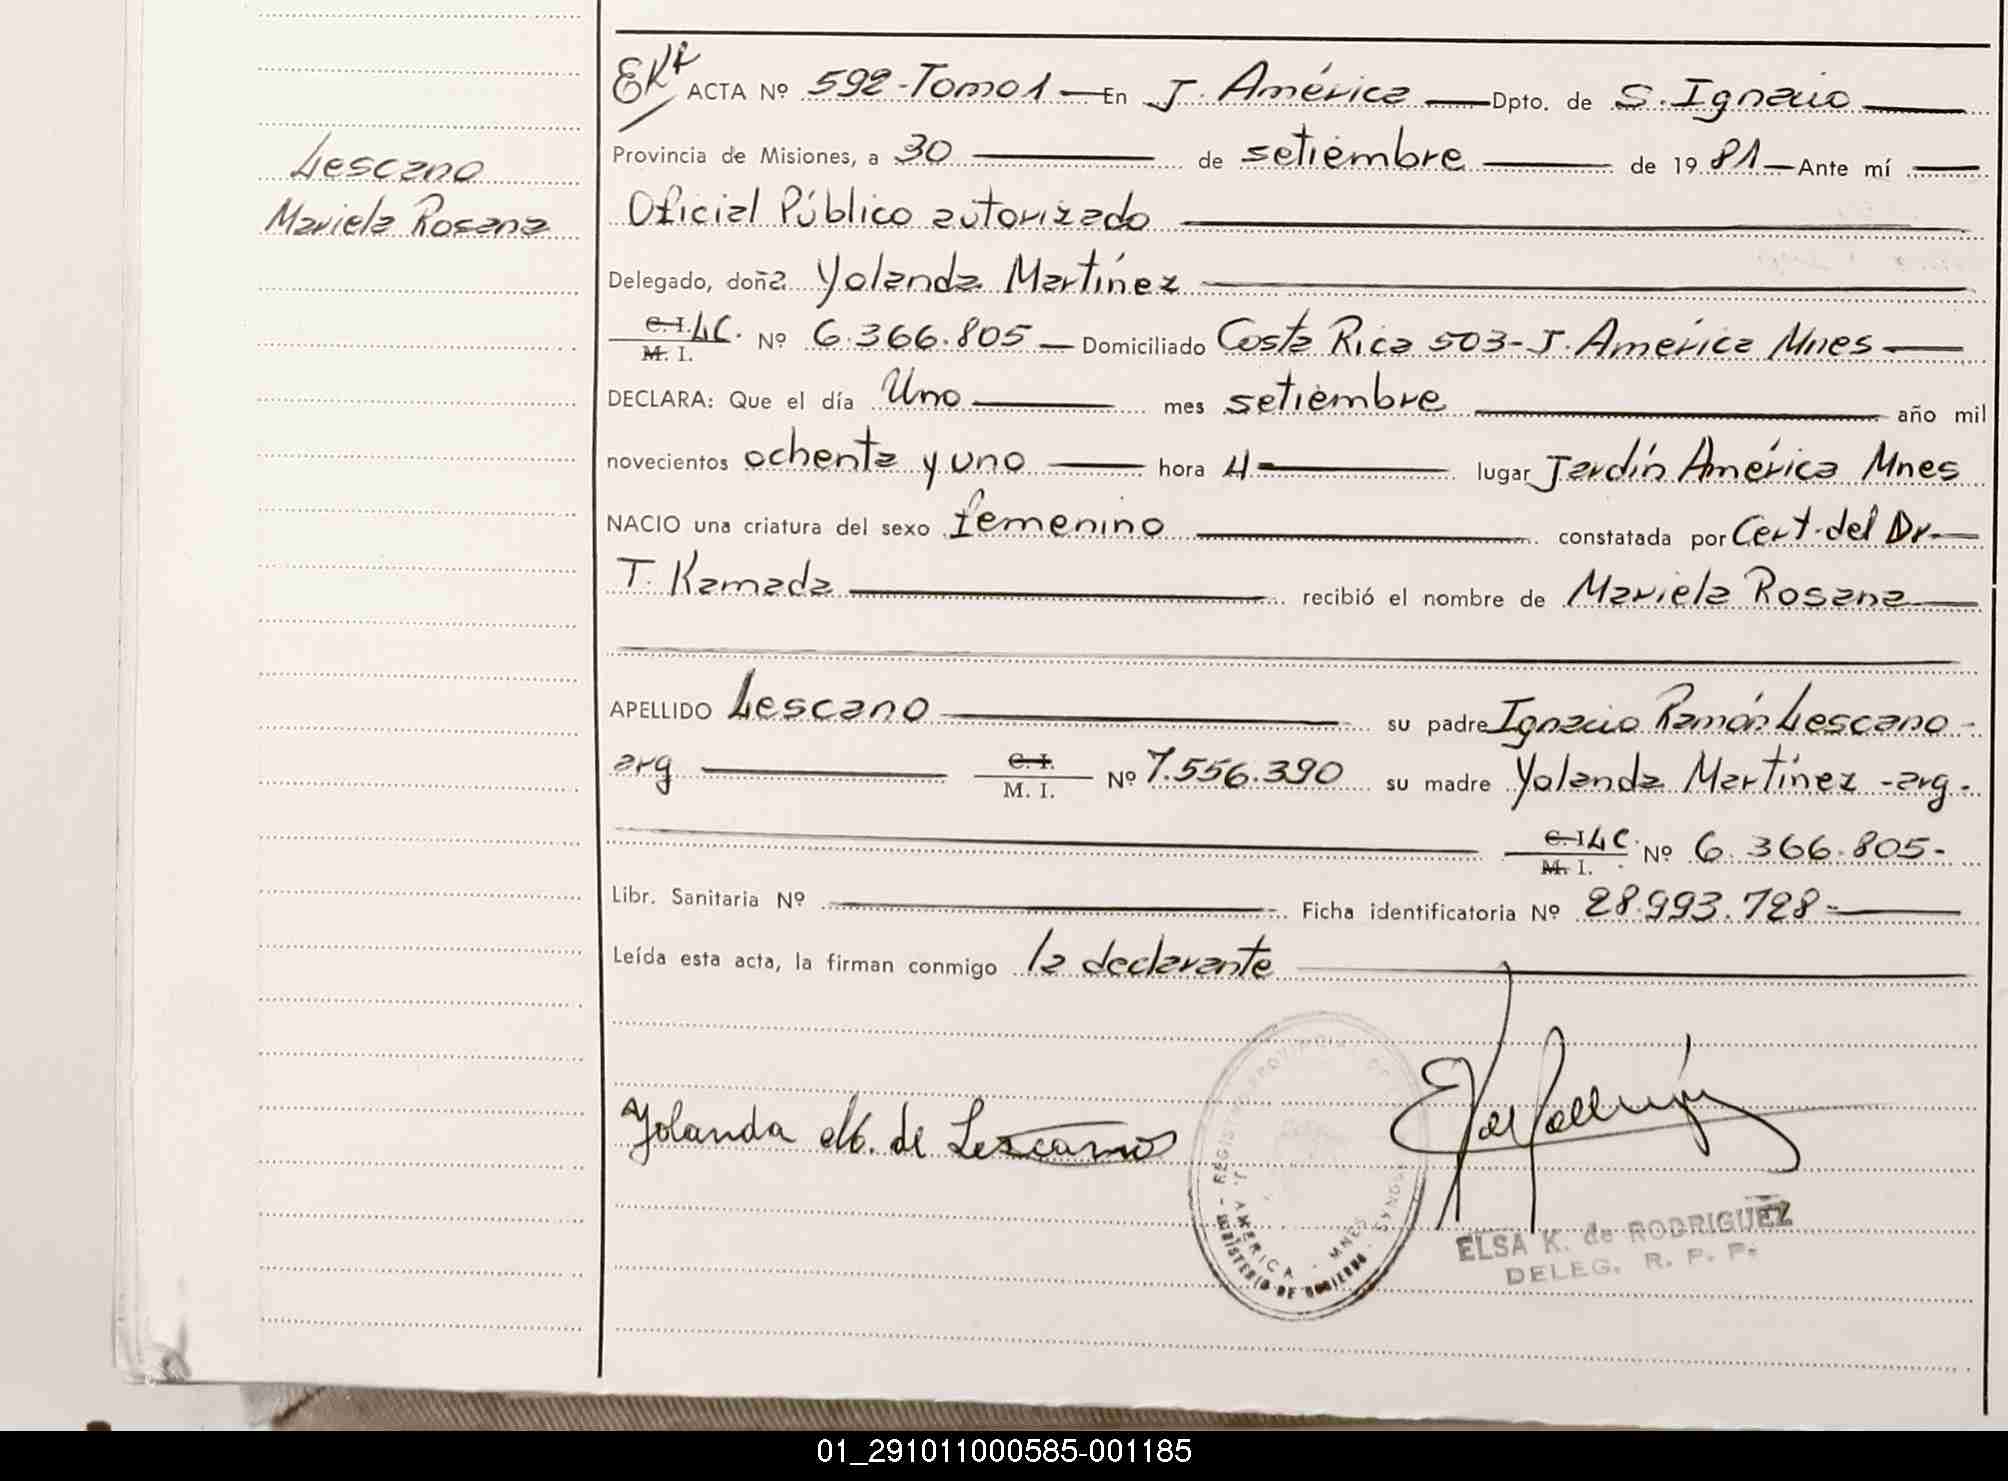 Lescano
Mariela Rosana
EKR ACTA Nº 592-Tomo 1 — En J. América — Dpto. de S. Ignacio
Provincia de Misiones, a 30 de setiembre de 1981 — Ante mí
Oficial Público autorizado
Delegado, doña Yolanda Martínez
C. I. LC. M. I. Nº 6.366.805 — Domiciliado Costa Rica 503- J. América Mnes
DECLARA: Que el día Uno mes setiembre año mil
novecientos ochenta y uno hora 4 lugar Jardín América Mnes
NACIO una criatura del sexo femenino constatada por Cert. del Dr
T. Kamada recibió el nombre de Mariela Rosana
APELLIDO Lescano su padre Ignacio Ramón Lescano -
arg C. I. M. I. Nº 7.556.390 su madre Yolanda Martínez - arg -
C. I. LC. M. I. Nº 6.366.805-
Libr. Sanitaria Nº Ficha identificatoria Nº 28.993.728-
Leída esta acta, la firman conmigo la declarante
Yolanda M. de Lescano
J. AMERICA - MNES
MINISTERIO DE GOBIERNO
ELSA K. de RODRIGUEZ
DELEG. R. P. P.
01_291011000585-001185